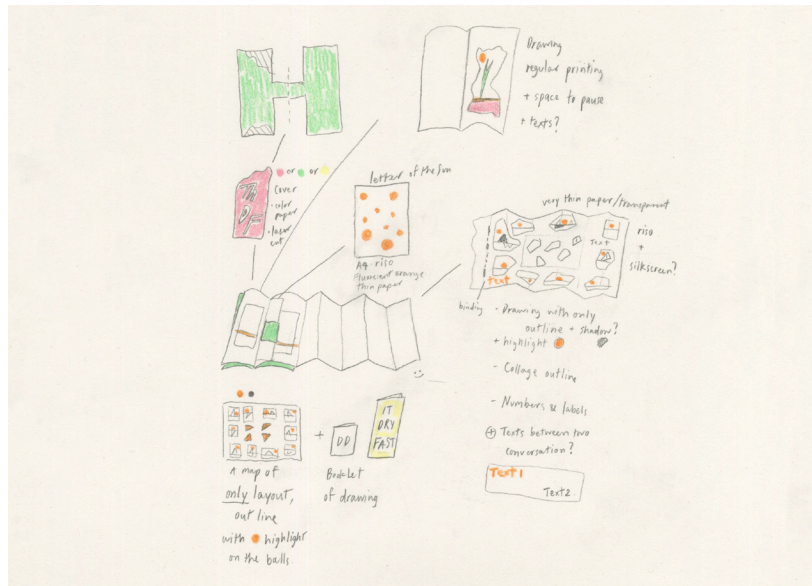 Drawing
regular printing
+ space to pause
+ texts?
or or
Cover
- color
paper
- laser
cut
letter of the Sun
A4 riso
Fluorescent orange
thin paper
very thin paper/transparent
Text
riso
+
silkscreen?
Text
binding
- Drawing with only
outline + shadow?
+ highlight
- Collage outline
- Numbers & labels
+ Texts between two
conversation?
Text1
Text2
+
DD
IT
DRY
FAST
A map of
only layout,
out line
with highlight
on the balls
Booklet
of drawing